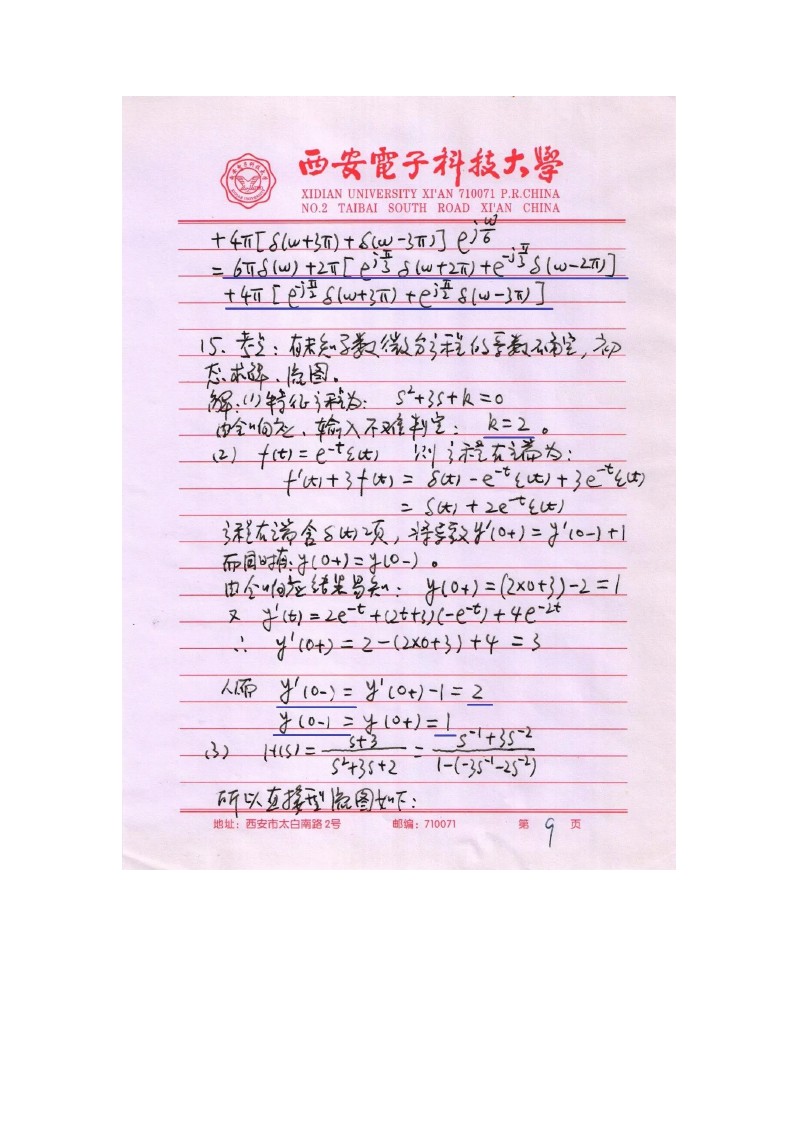 西安電子科技大學
XIDIAN UNIVERSITY XI'AN 710071 P.R.CHINA
NO.2 TAIBAI SOUTH ROAD XI'AN CHINA
+4π[δ(ω+3π)+δ(ω-3π)] e^{jω/6}
=6πδ(ω)+2π[e^{j π/3}δ(ω+2π)+e^{-j π/3}δ(ω-2π)]
+4π[e^{-j π/2}δ(ω+3π)+e^{j π/2}δ(ω-3π)]
15、考点：有未知子数微分方程的系数不确定，初
态求解、流图。
解：(1)特征方程为： s²+3s+k=0
由全响应、输入不难判定： k=2 。
(2) f(t)=e^{-t}ε(t) 则方程右端为：
f'(t)+3f(t) = δ(t)-e^{-t}ε(t)+3e^{-t}ε(t)
= δ(t)+2e^{-t}ε(t)
方程右端含δ(t)项，将导致y'(0+)=y'(0-)+1
而同时有：y(0+)=y(0-) 。
由全响应结果易知： y(0+)=(2×0+3)-2=1
又 y'(t)=2e^{-t}+(2t+3)(-e^{-t})+4e^{-2t}
∴ y'(0+)=2-(2×0+3)+4=3
从而 y'(0-)=y'(0+)-1=2
y(0-)=y(0+)=1
(3) H(s)=\frac{s+3}{s²+3s+2}=\frac{s^{-1}+3s^{-2}}{1-(-3s^{-1}-2s^{-2})}
所以直接型流图如下：
地址：西安市太白南路2号 邮编：710071 第 9 页